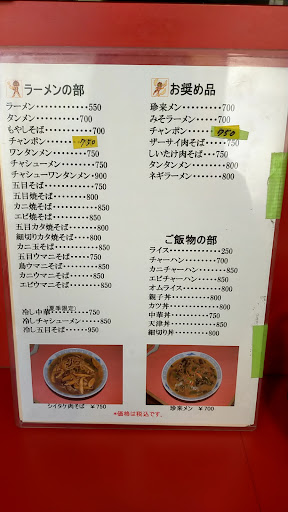 ラーメンの部
ラーメン・・・・・・・・・550
タンメン・・・・・・・・700
もやしそば・・・・・・・700
チャンポン・・・・・750
ワンタンメン・・・・・・750
チャシューメン・・・・・750
チャシューワンタンメン・900
五目そば・・・・・・・・800
五目焼そば・・・・・・・800
カニ焼そば・・・・・・・850
エビ焼そば・・・・・・・850
五目カタ焼そば・・・・・800
細切りカタ焼そば・・・・800
カニ玉そば・・・・・・850
五目ウマニそば・・・・・800
鳥ウマニそば・・・・・・850
カニウマニそば・・・・・850
エビウマニそば・・・・・850
(夏季限定)
冷し中華・・・・・・・750
冷しチャシューメン・・・850
冷し五目そば・・・・・950
お奨め品
珍来メン・・・・・・・700
みそラーメン・・・・・700
チャンポン・・・・・950
ザーサイ肉そば・・・・750
しいたけ肉そば・・・・750
タンタンメン・・・・・800
ネギラーメン・・・・・800
ご飯物の部
ライス・・・・・・・・・250
チャーハン・・・・・・・700
カニチャーハン・・・・・850
エビチャーハン・・・・・850
オムライス・・・・・・・800
親子丼・・・・・・・・・800
カツ丼・・・・・・・・・800
中華丼・・・・・・・・・750
天津丼・・・・・・・・・850
細切り丼・・・・・・・・800
シイタケ肉そば ¥750
珍来メン ¥700
*価格は税込です。